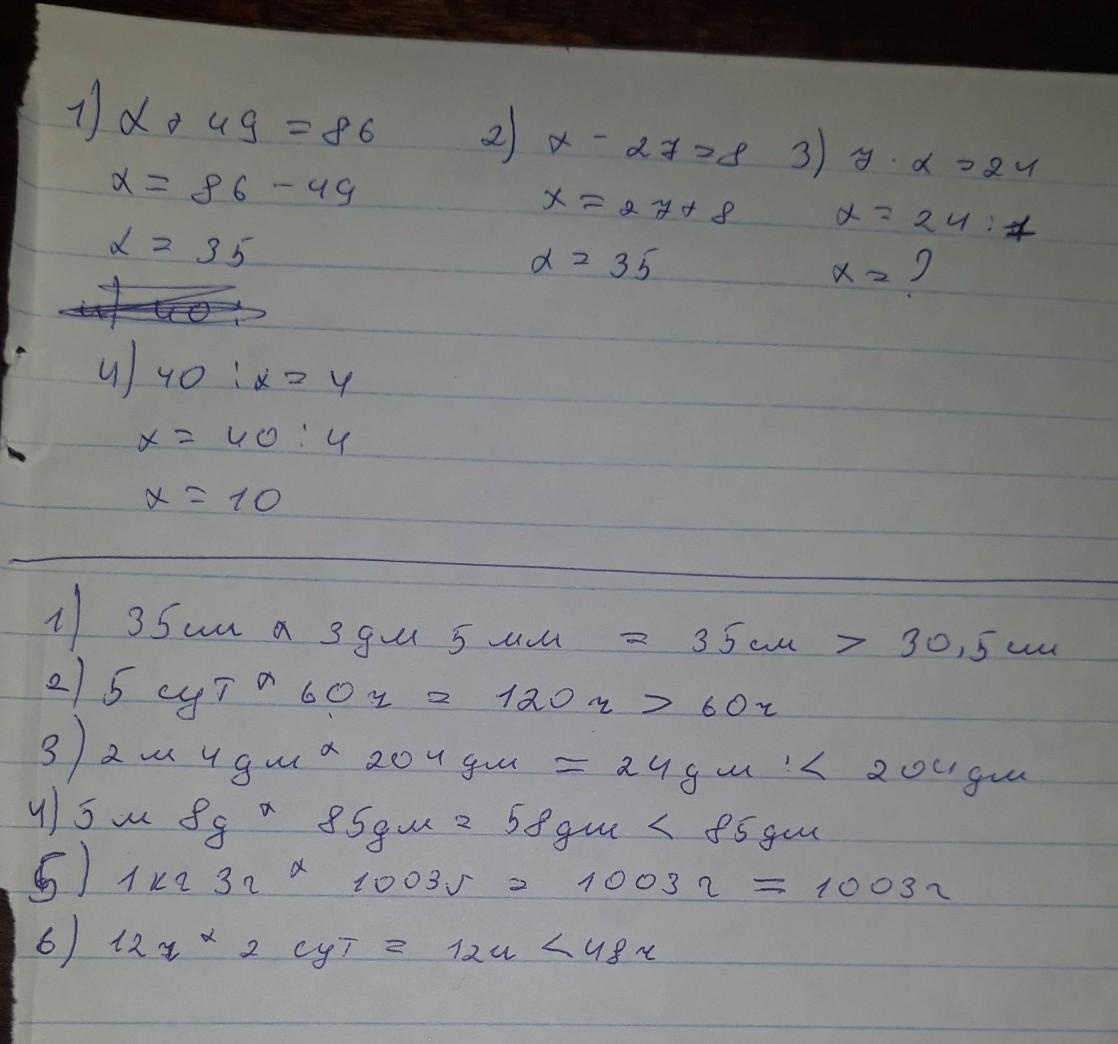 1) x + 49 = 86 2) x - 27 = 8 3) 7 · x = 24
x = 86 - 49 x = 27 + 8 x = 24 : 7
x = 35 x = 35 x = ?
4) 40 :
4) 40 : x = 4
x = 40 : 4
x = 10
1) 35 см x 3 дм 5 мм = 35 см > 30,5 см
2) 5 сут x 60 ч = 120 ч > 60 ч
3) 2 м 4 дм x 204 дм = 24 дм < 204 дм
4) 5 м 8д x 85 дм = 58 дм < 85 дм
5) 1 кг 3 г x 1003 г = 1003 г = 1003 г
6) 12 ч x 2 сут = 12 ч < 48 ч